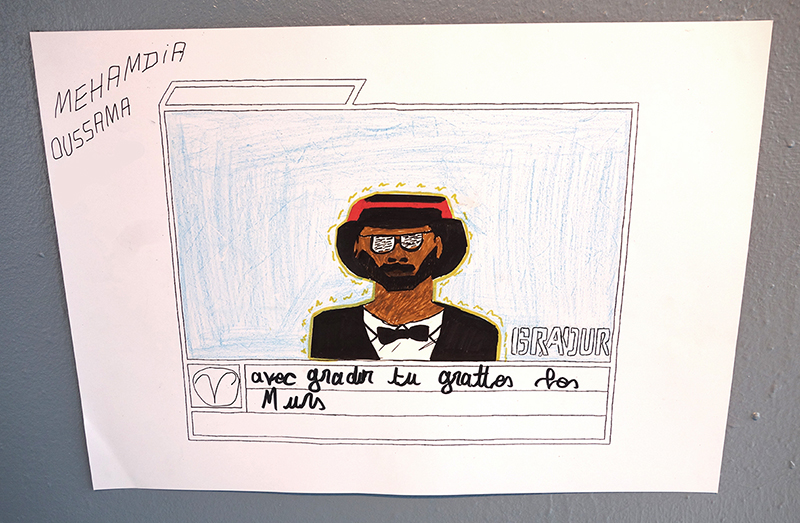 MEHAMDiA
OUSSAMA
GRADUR
avec gradur tu grattes les
Murs